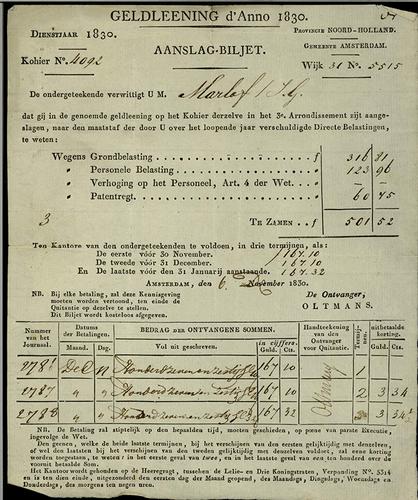 GELDLEENING d'Anno 1830.
DIENSTJAAR 1830.
PROVINCIE NOORD-HOLLAND.
GEMEENTE AMSTERDAM.
AANSLAG-BILJET.
Kohier No. 4092
Wijk 31 No. 5515
De ondergeteekende verwittigt U M.
dat gij in de genoemde geldleening op het Kohier derzelve in het 3e. Arrondissement zijt aange-
slagen, naar den maatstaf der door U over het loopende jaar verschuldigde Directe Belastingen,
te weten:
Wegens Grondbelasting ƒ 316 81
" Personele Belasting " 123 96
" Verhoging op het Personeel, Art. 4 der Wet "
" Patentregt " 60 75
3
TE ZAMEN ƒ 501 52
Ten Kantore van den ondergeteekenden te voldoen, in drie termijnen, als:
De eerste vóór 30 November. ƒ 167.10
De tweede vóór 31 December. 167.10
En De laatste vóór den 31 Januarij aanstaande. 167.32
AMSTERDAM, den 6. November 1830.
NB. Bij elke betaling, zal deze Kennisgeving
moeten worden vertoond, ten einde de
Quitantie op dezelve te stellen.
Dit Biljet wordt kosteloos afgegeven.
De Ontvanger,
OLTMANS.
Nummer van het Journaal.
Datums der Betalingen.
Maand. Dag.
BEDRAG DER ONTVANGENE SOMMEN.
Vol uit geschreven.
in cijffers.
Guld. Cts.
Handteekening van den Ontvanger voor Quitantie.
Termijnen.
uitbetaalde korting.
Guld. Cts.
278 Dec 167 10 1
2787 " " 167 10 2 3 34
2788 " " 167 32 3 3 34
NB. De Betaling zal stiptelijk op den bepaalden tijd, moeten geschieden, op poene van parate Executie,
ingevolge de Wet.
Den genen, welke de beide laatste termijnen, bij het verschijnen van den eersten gelijktijdig met denzelven,
of wel den laatsten bij het verschijnen van den tweeden gelijktijdig met dezen voldoet, zal eene korting
worden toegestaan, te weten: in het eerste geval van twee, en in het laatste geval van een percent over de
vooruit betaalde Som.
Het Kantoor wordt gehouden op de Heeregragt, tusschen de Lelie- en Drie Koningstraten, Verponding No. 5314
en is dispensabel, behalve den eersten en laatsten dag der Maand geopend, des Maandags, Dingsdags, Woensdags en
Donderdags, des morgens ten negen ure.